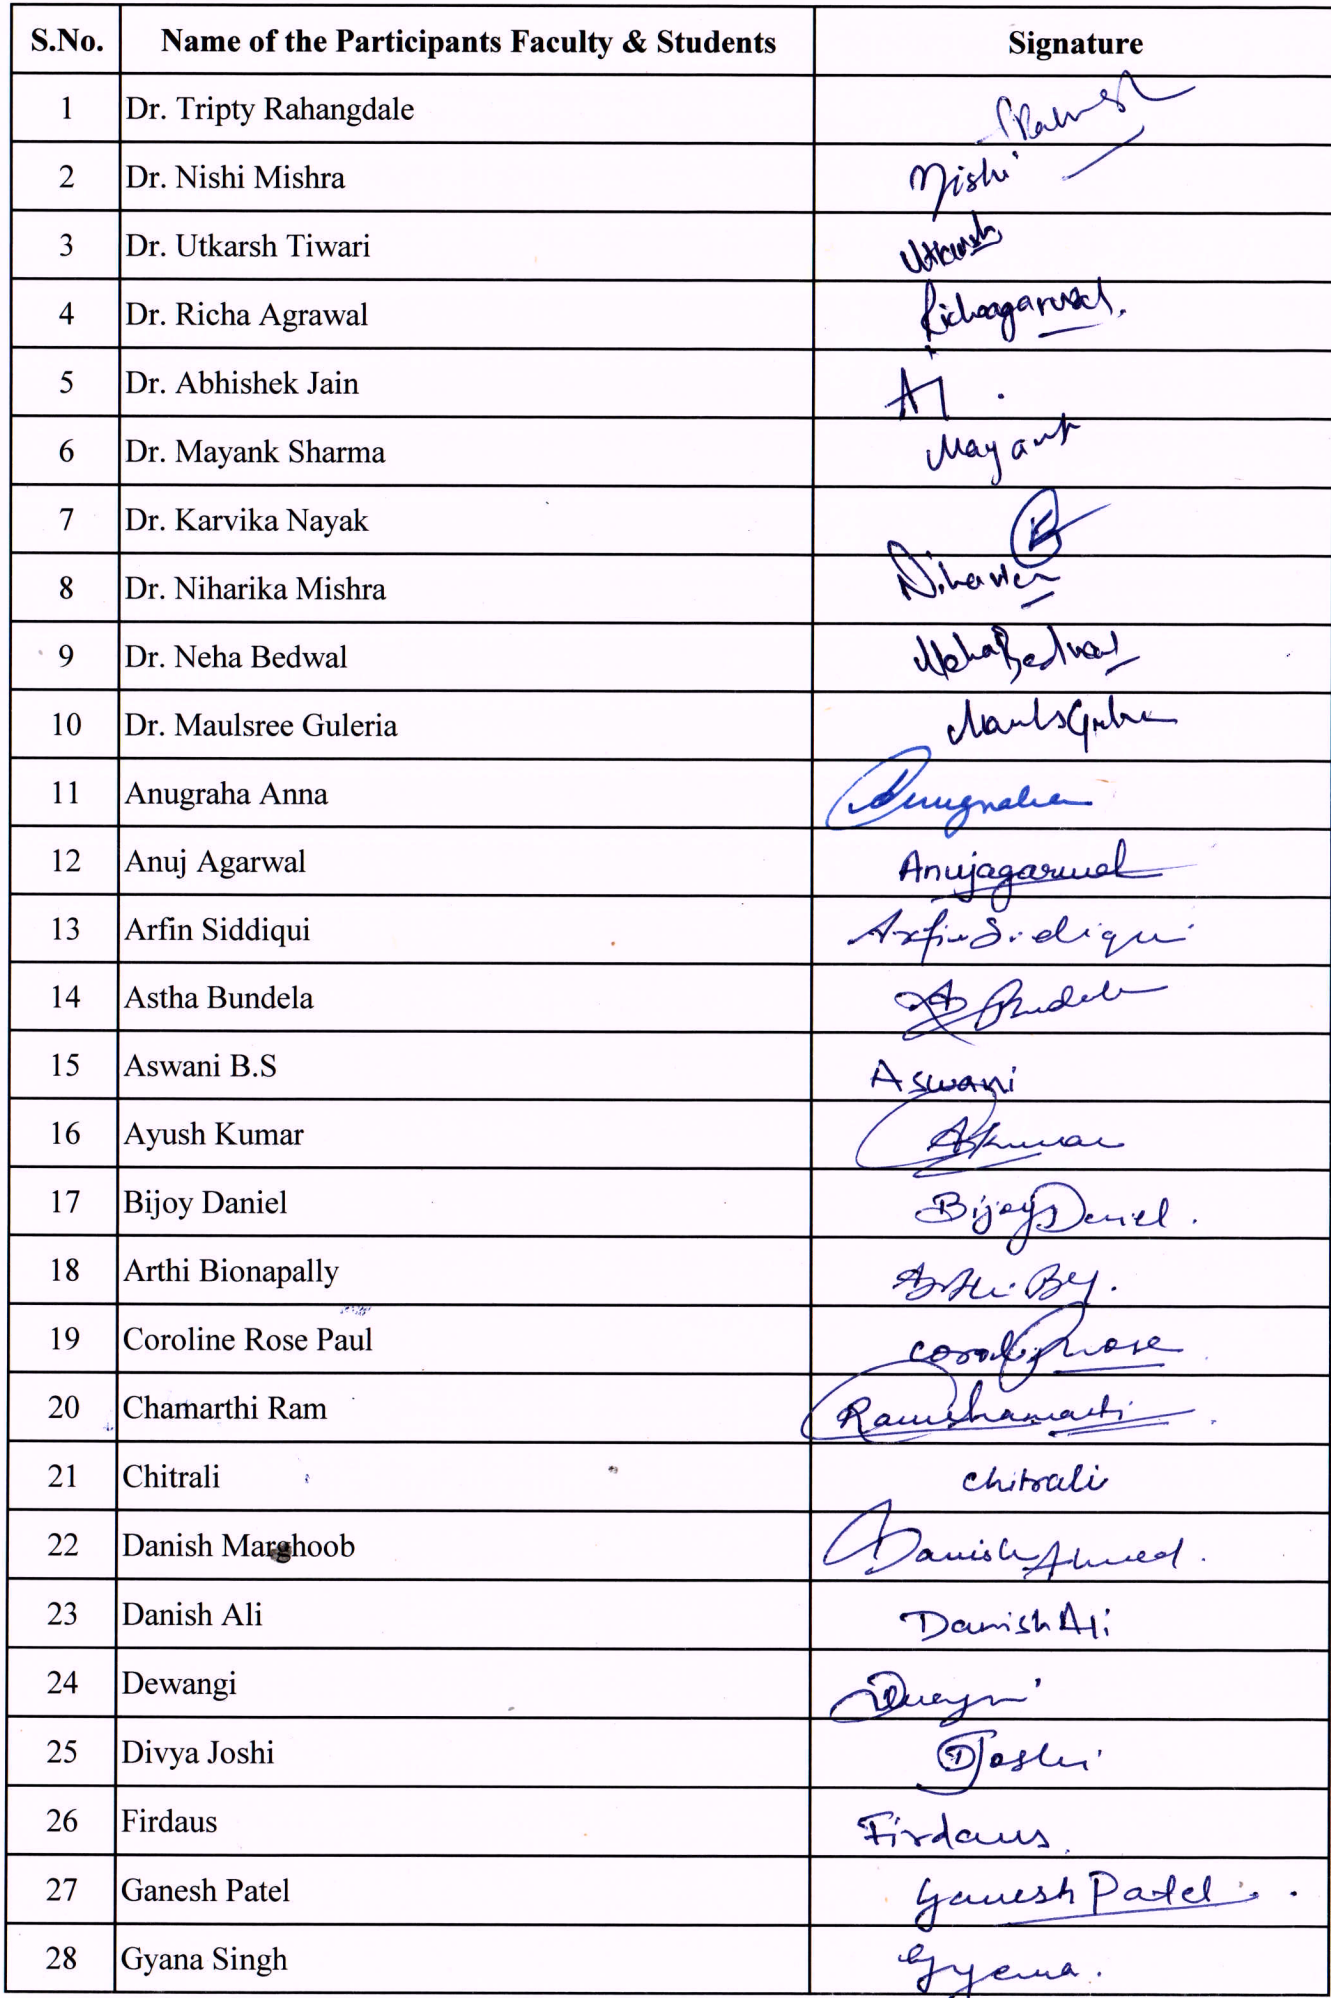 S.No. Name of the Participants Faculty & Students Signature
1 Dr. Tripty Rahangdale
2 Dr. Nishi Mishra Nishi
3 Dr. Utkarsh Tiwari Utkarsh
4 Dr. Richa Agrawal Richaagarwal.
5 Dr. Abhishek Jain AJ.
6 Dr. Mayank Sharma Mayank
7 Dr. Karvika Nayak K
8 Dr. Niharika Mishra
9 Dr. Neha Bedwal Neha Bedwal
10 Dr. Maulsree Guleria
11 Anugraha Anna Anugraha
12 Anuj Agarwal Anujagarwal
13 Arfin Siddiqui Arfin Sidiqui
14 Astha Bundela
15 Aswani B.S Aswani
16 Ayush Kumar AKumar
17 Bijoy Daniel Bijoy Daniel.
18 Arthi Bionapally Arthi
19 Coroline Rose Paul Rose
20 Chamarthi Ram Ramchamarthi
21 Chitrali chitrali
22 Danish Marghoob Danish Ahmed.
23 Danish Ali Danish Ali
24 Dewangi
25 Divya Joshi DJoshi
26 Firdaus Firdaus
27 Ganesh Patel Ganesh Patel
28 Gyana Singh Gyana.